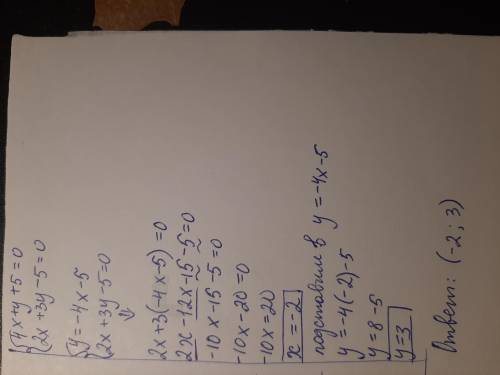 {4x+y+5=0
{2x+3y-5=0
{y=-4x-5
{2x+3y-5=0
2x+3(-4x-5)=0
2x-12x-15-5=0
-10x-15-5=0
-10x-20=0
-10x-20
x=-2
подставим в y=-4x-5
y=-4(-2)-5
y=8-5
y=3
Ответ: (-2; 3)